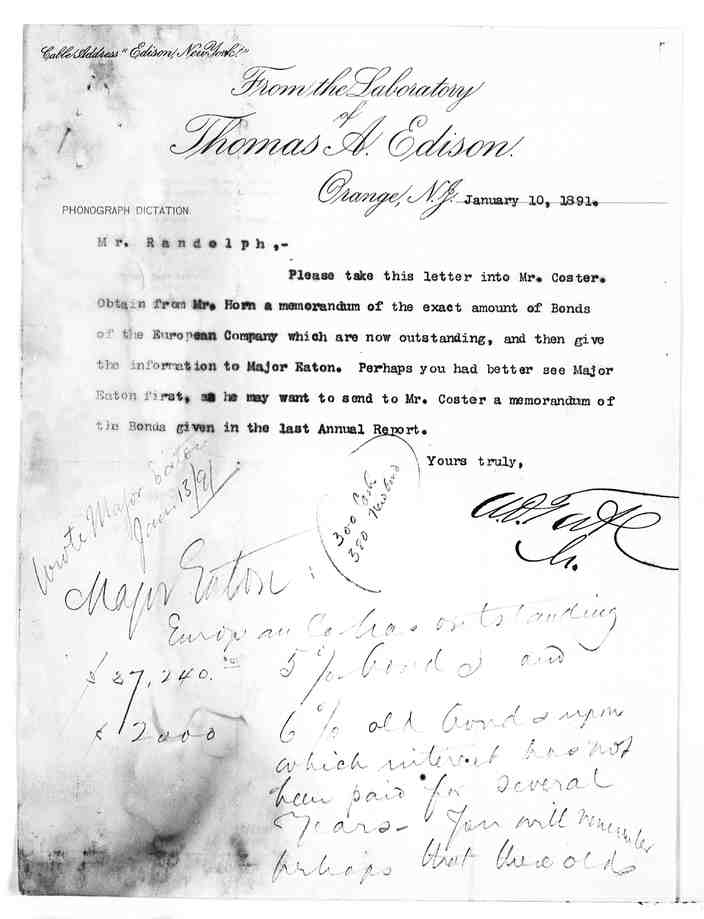 Cable Address "Edison, New York."
From the Laboratory
of
Thomas A. Edison.
Orange, N.J. January 10, 1891.
PHONOGRAPH DICTATION.
Mr. Randolph,-
Please take this letter into Mr. Coster.
Obtain from Mr. Horn a memorandum of the exact amount of Bonds
of the European Company which are now outstanding, and then give
the information to Major Eaton. Perhaps you had better see Major
Eaton first, as he may want to send to Mr. Coster a memorandum of
the Bonds given in the last Annual Report.
Yours truly,
Wrote Major Eaton
Jan 13/91
Major Eaton:
European Co has outstanding
$ 37,240. 5% bonds and
$ 2000 6% old bonds upon
which interest has not
been paid for several
years - You will remember
perhaps that these old